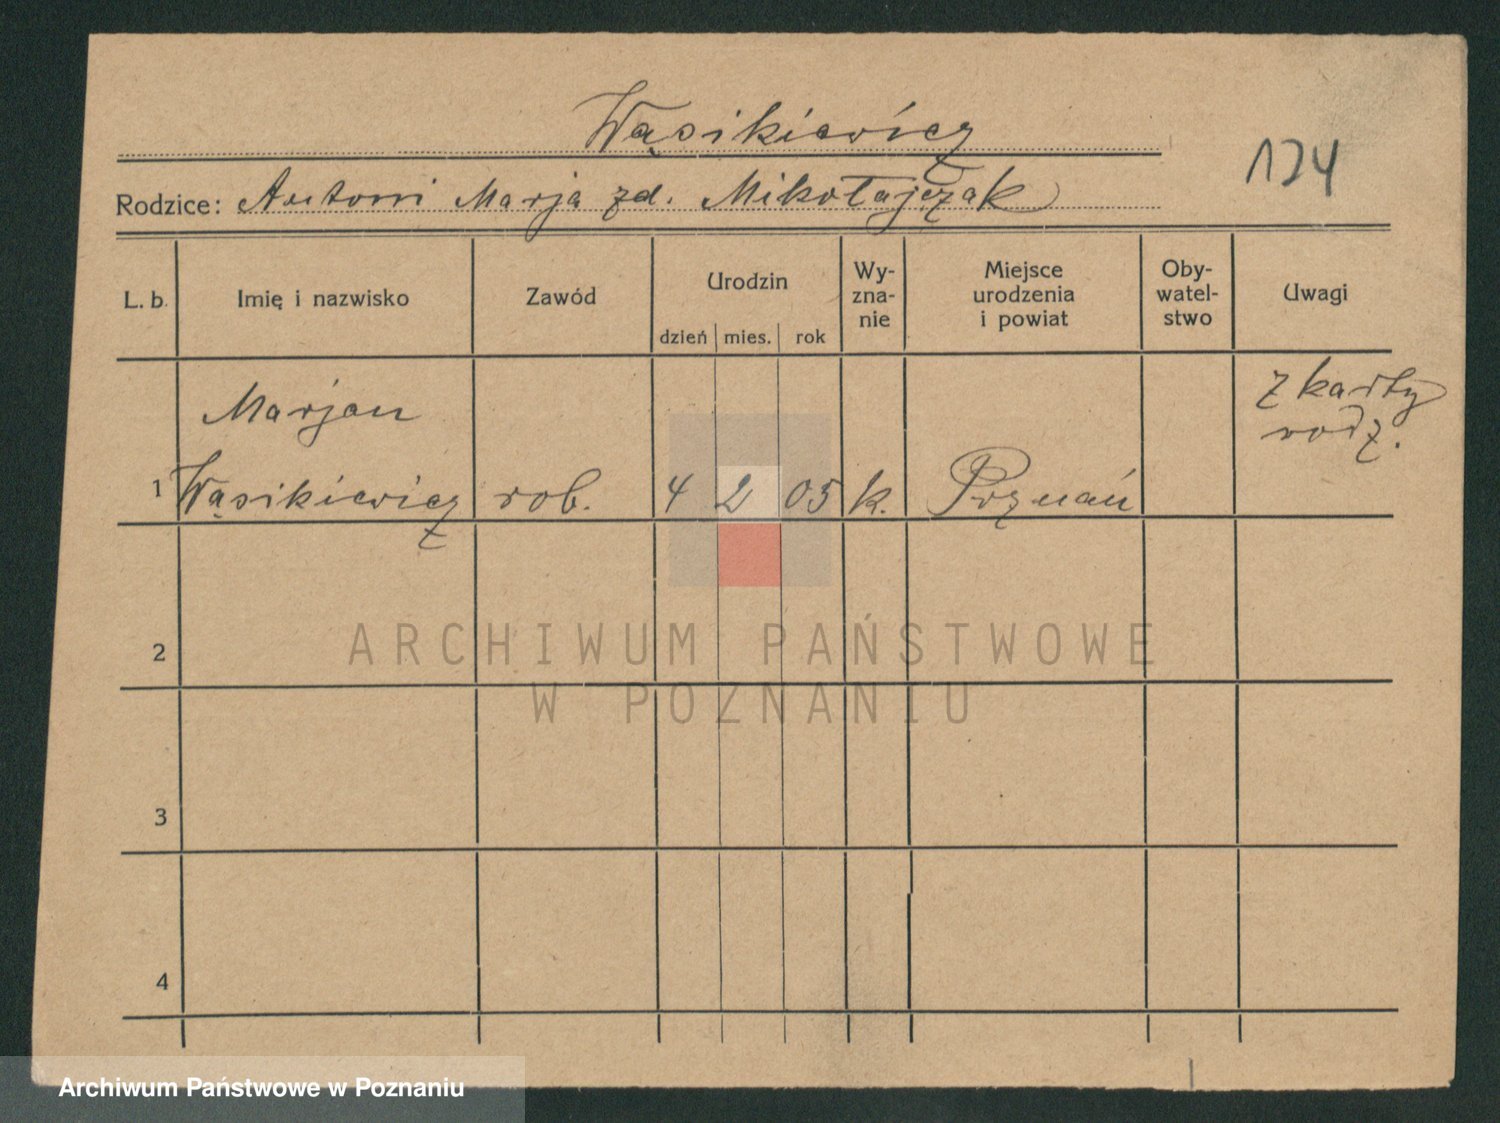 Wąsikiewicz
174
Rodzice: Antoni Marja zd. Mikołajczak
L. b. Imię i nazwisko Zawód Urodzin dzień mies. rok Wy-zna-nie Miejsce urodzenia i powiat Oby-watel-stwo Uwagi
Marjan z karty
rodz.
1 Wąsikiewicz rob. 4 2 05 k. Poznań
2
ARCHIWUM PAŃSTWOWE
W POZNANIU
3
4
Archiwum Państwowe w Poznaniu